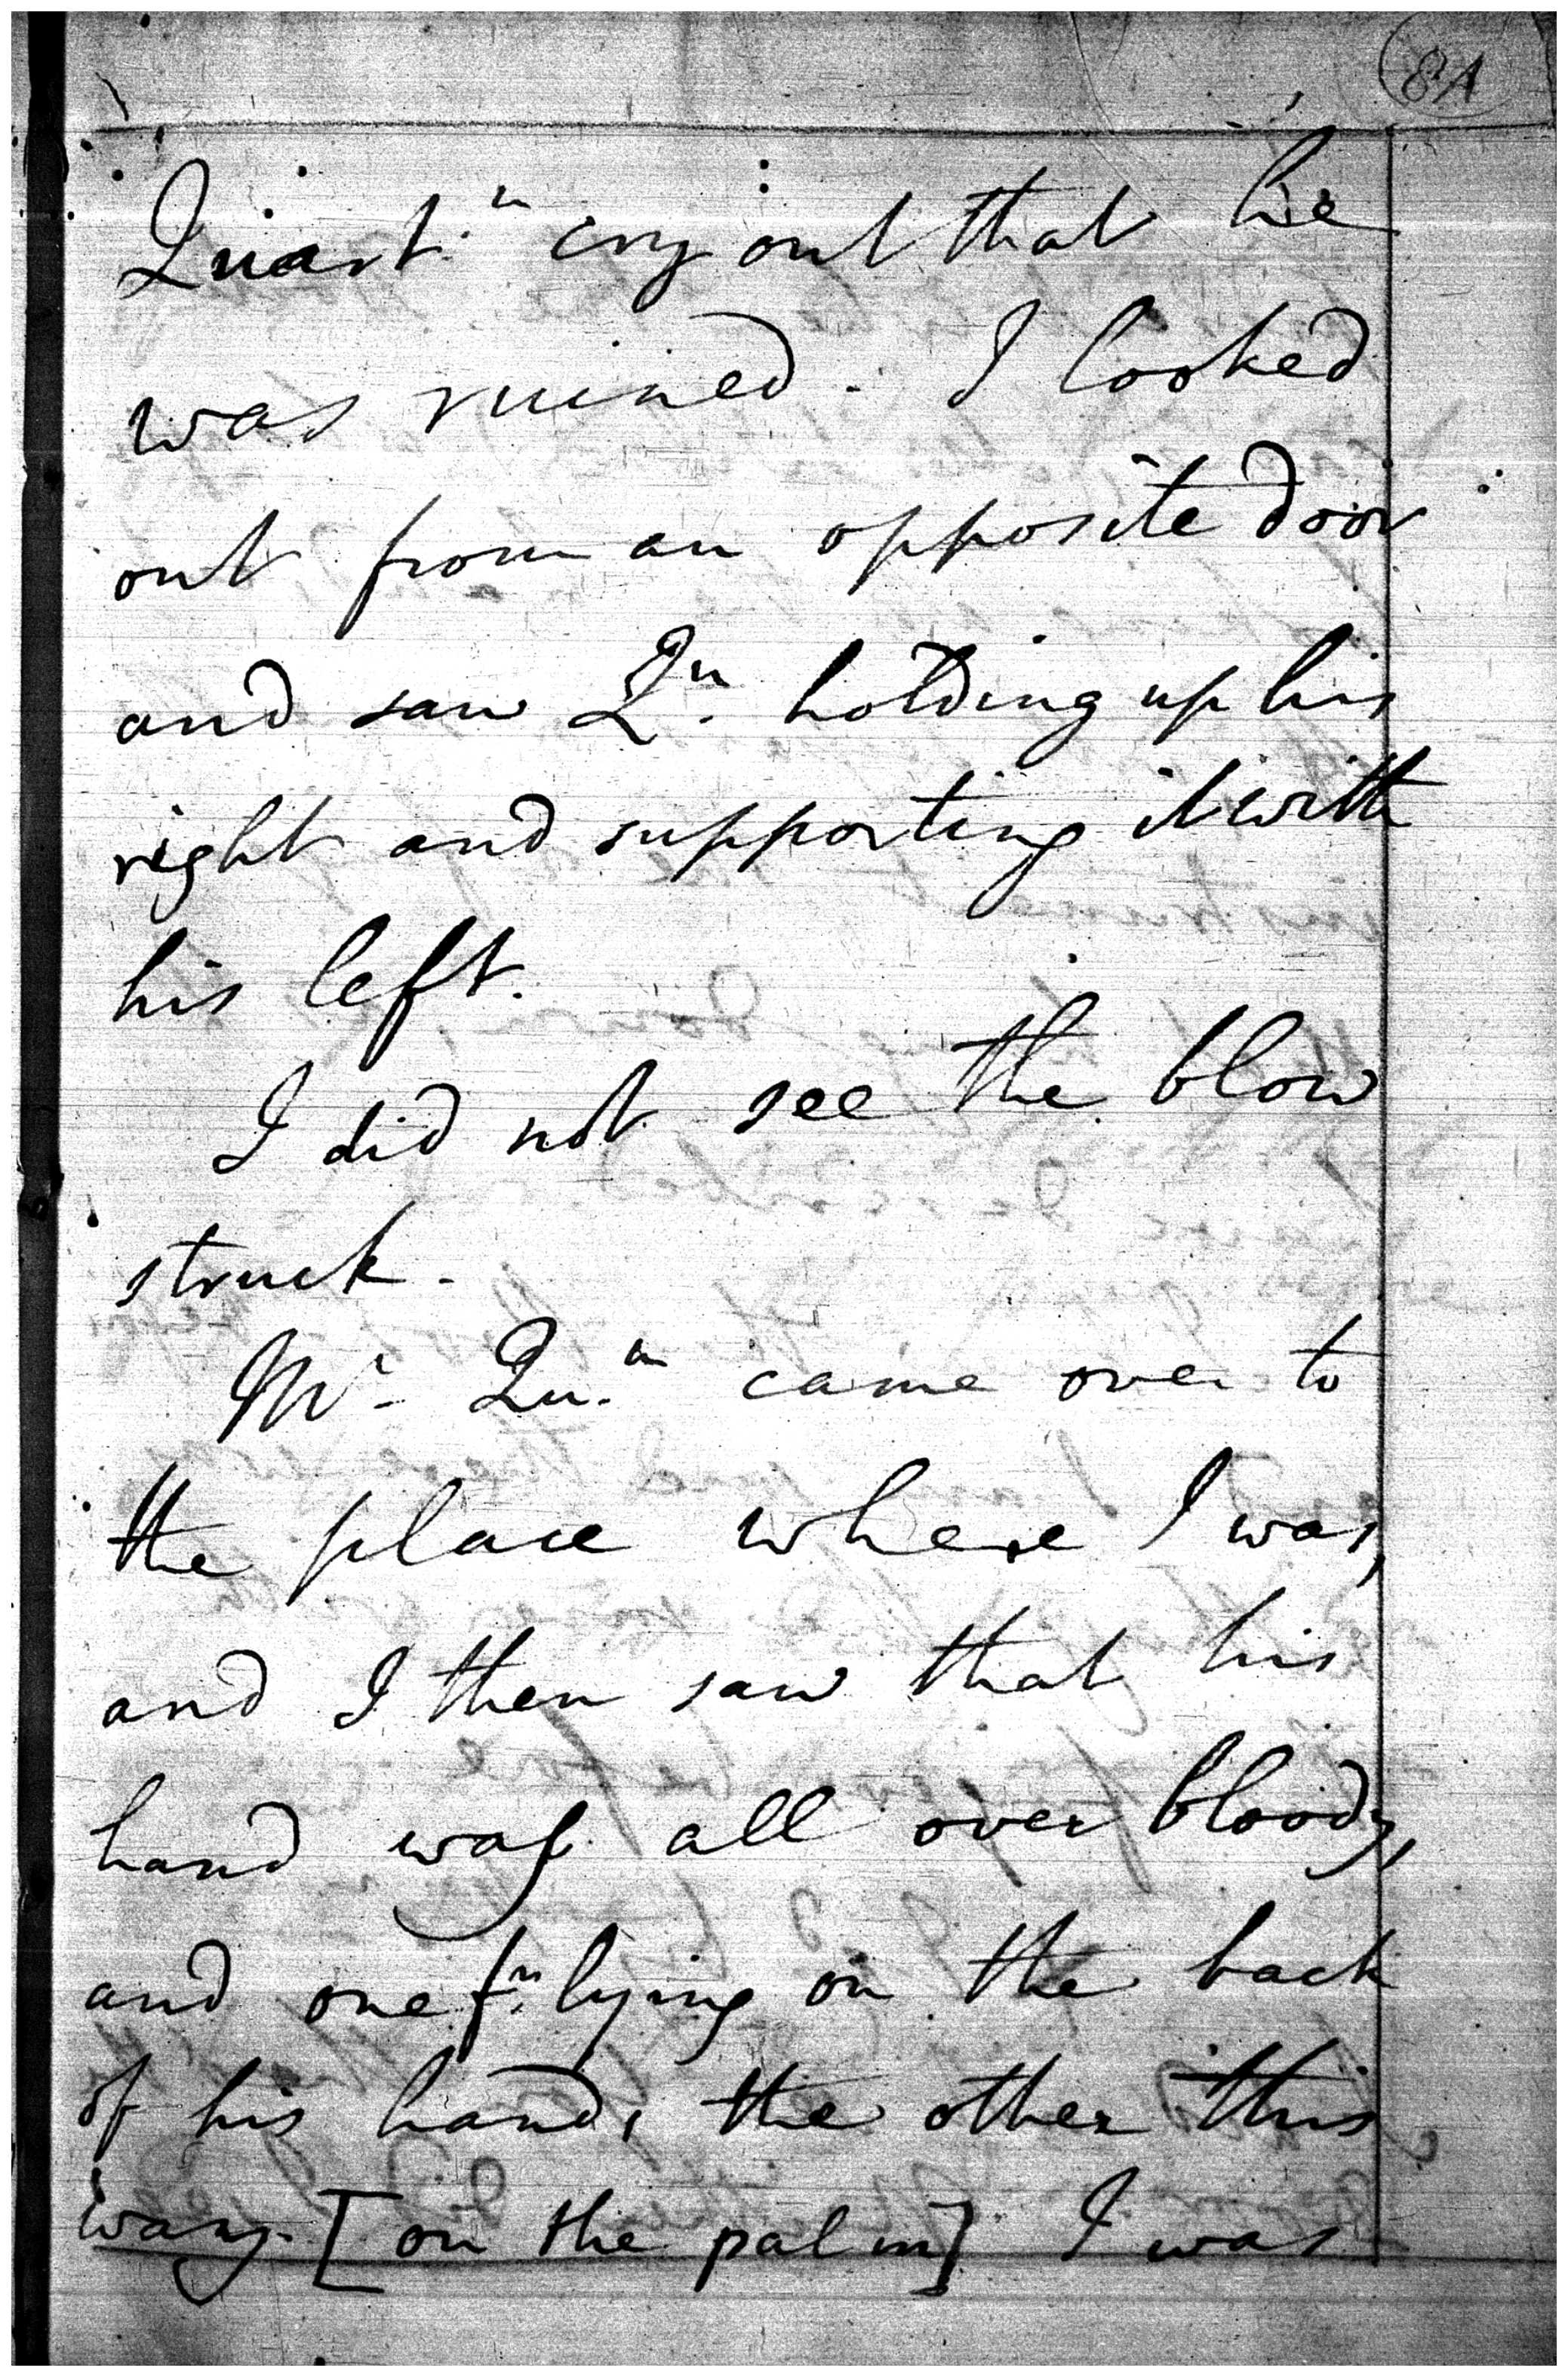 84
Quart.n cry out that he
was ruined. I looked
out from an opposite door
and saw Qn. holding up his
right and supporting it with
his left.
I did not see the blow
struck -
Mr. Qu.n came over to
the place where I was,
and I then saw that his
hand was all over bloody,
and one fr. lying on the back
of his hand, the other this
way. [on the palm] I was